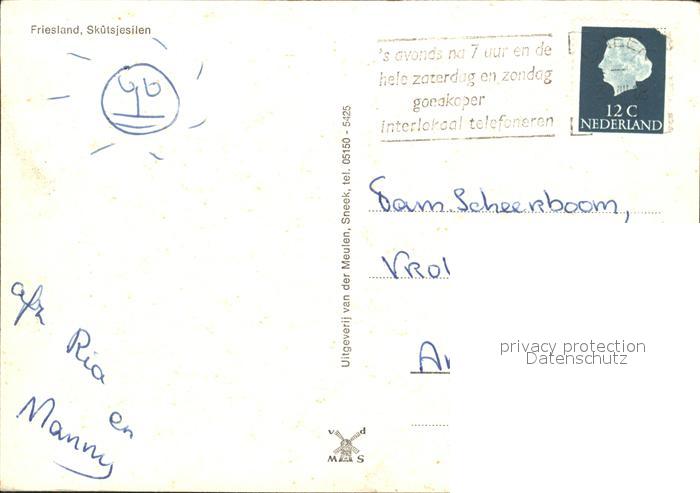 Friesland, Skûtsjesilen
's avonds na 7 uur en de
hele zaterdag en zondag
goedkoper
interlokaal telefoneren
12 C
NEDERLAND
Uitgeverij van der Meulen, Sneek, tel. 05150 - 5425
Fam Scheerboom,
Vrol
privacy protection
Datenschutz
afz
Ria
en
Manny
v d
M S